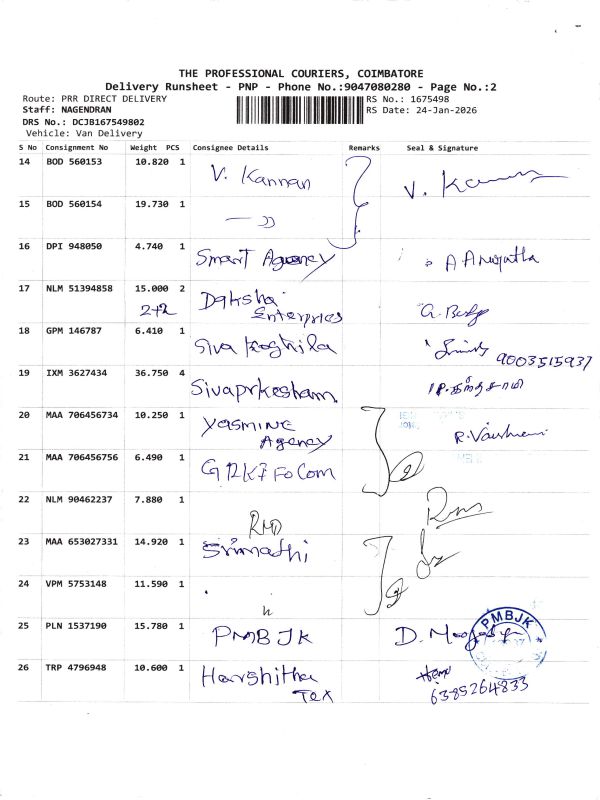 THE PROFESSIONAL COURIERS, COIMBATORE
Delivery Runsheet - PNP - Phone No.:9047080280 - Page No.:2
Route: PRR DIRECT DELIVERY RS No.: 1675498
Staff: NAGENDRAN RS Date: 24-Jan-2026
DRS No.: DCJB167549802
Vehicle: Van Delivery
S No Consignment No Weight PCS Consignee Details Remarks Seal & Signature
14 BOD 560153 10.820 1 V. Kannan V. Kannan
15 BOD 560154 19.730 1 — ))
16 DPI 948050 4.740 1 Smart Agency
17 NLM 51394858 15.000 2 Daksha
2+2 Enterprices
18 GPM 146787 6.410 1 Siva 9003515937
19 IXM 3627434 36.750 4 Sivaprkasham
20 MAA 706456734 10.250 1 Yasmine
Agency
21 MAA 706456756 6.490 1 FoCom
22 NLM 90462237 7.880 1
23 MAA 653027331 14.920 1 Srimathi
24 VPM 5753148 11.590 1
25 PLN 1537190 15.780 1 PMBJK PMBJK
26 TRP 4796948 10.600 1 Harshitha
Tex 6385264833